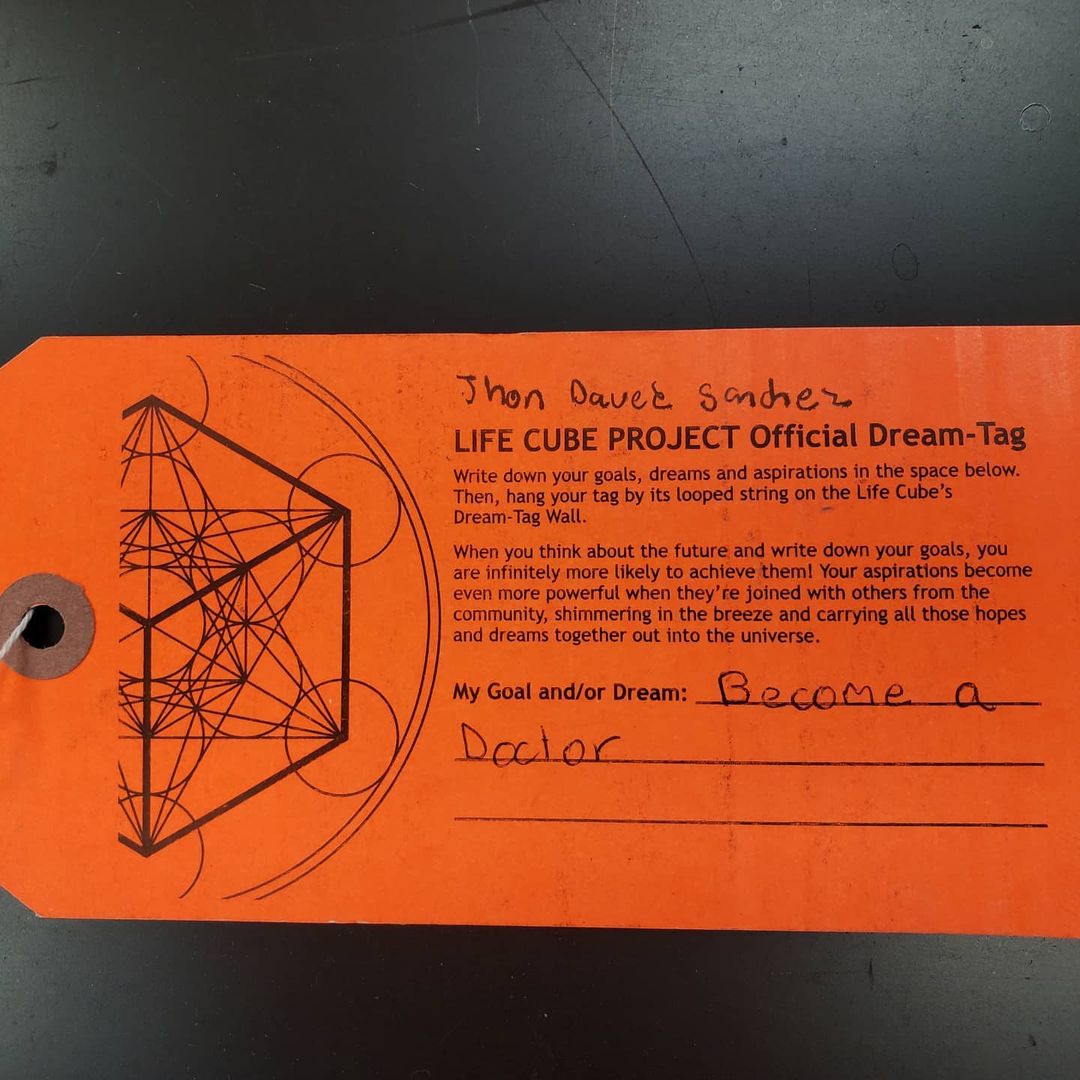 Jhon Sanchez
LIFE CUBE PROJECT Official Dream-Tag
Write down your goals, dreams and aspirations in the space below.
Then, hang your tag by its looped string on the Life Cube’s
Dream-Tag Wall.
When you think about the future and write down your goals, you
are infinitely more likely to achieve them! Your aspirations become
even more powerful when they’re joined with others from the
community, shimmering in the breeze and carrying all those hopes
and dreams together out into the universe.
My Goal and/or Dream: Become a
Doctor